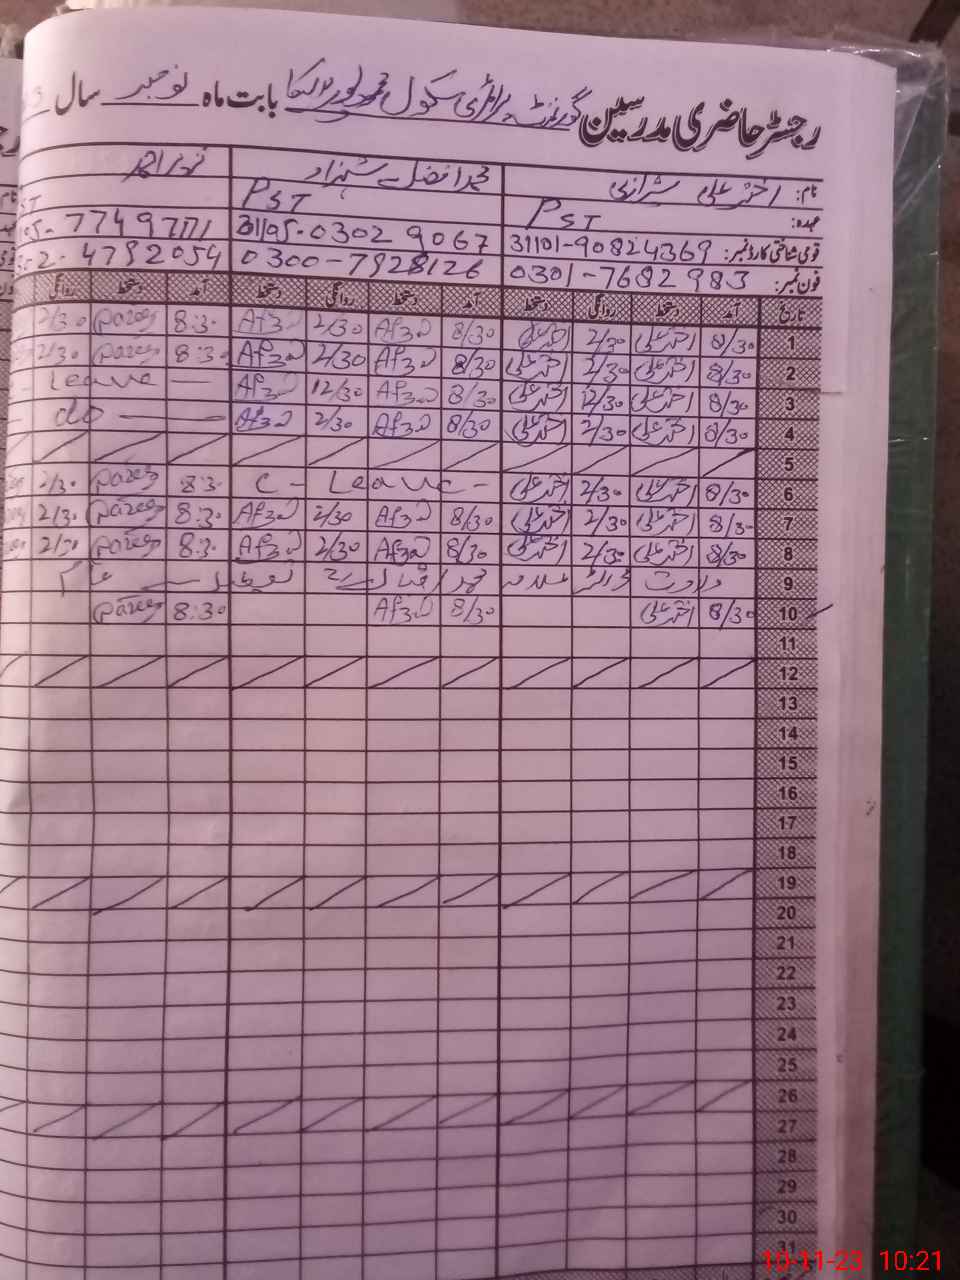 رجسٹر حاضری مدرسین گورنمنٹ پرائمری سکول بابت ماہ نومبر سال
نام: اختر علی شیرازی محمد افضل شہزاد
عہدہ: PST PST ST
قومی شناختی کارڈ نمبر: 31101-90824369 31105-0302 9067
فون نمبر: 0301-7682983 0300-7928126 4792054
تاریخ آمد دستخط روانگی دستخط آمد دستخط روانگی دستخط آمد دستخط روانگی
1 8/30 اختر علی 2/30 اختر علی 8/30 Afzal 2/30 Afzal 8:30 2/30
2 8/30 اختر علی 2/30 اختر علی 8/30 Afzal 2/30 Afzal 8:30 2/30
3 8/30 اختر علی 12/30 اختر علی 8/30 Afzal 12/30 Afzal — Leave —
4 8/30 اختر علی 2/30 اختر علی 8/30 Afzal 2/30 Afzal — do —
5
6 8/30 اختر علی 2/30 اختر علی C - Leave - 8:30 2/30
7 8/30 اختر علی 2/30 اختر علی 8/30 Afzal 2/30 Afzal 8:30 2/30
8 8/30 اختر علی 2/30 اختر علی 8/30 Afzal 2/30 Afzal 8:30 2/30
9 ولادت ڈاکٹر علامہ محمد اقبال تعطیل عام
10 8/30 اختر علی 8/30 Afzal 8:30
11
12
13
14
15
16
17
18
19
20
21
22
23
24
25
26
27
28
29
30
31
10-11-23 10:21